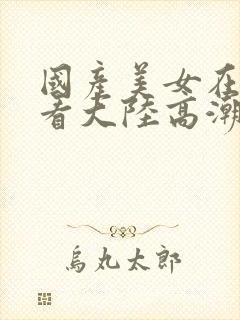 國產美女在
看大陸高潮
烏丸太郎